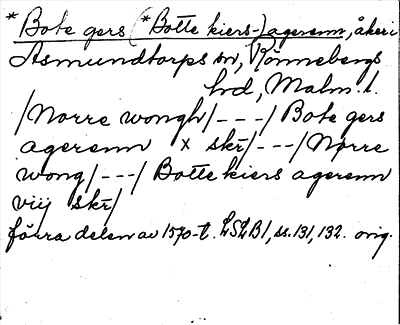 *Bote gers (*Botte kiers-) agerenn, åker i
Asmundtorps sn, Rönnebergs
hd, Malm. l.
/Norre wongh/---/ Bote gers
agerenn x skr/---/Nørre
wong/---/ Botte kiers agerenn
viij skr/
förra delen av 1570-t. LSLB1, ss. 131, 132. orig.